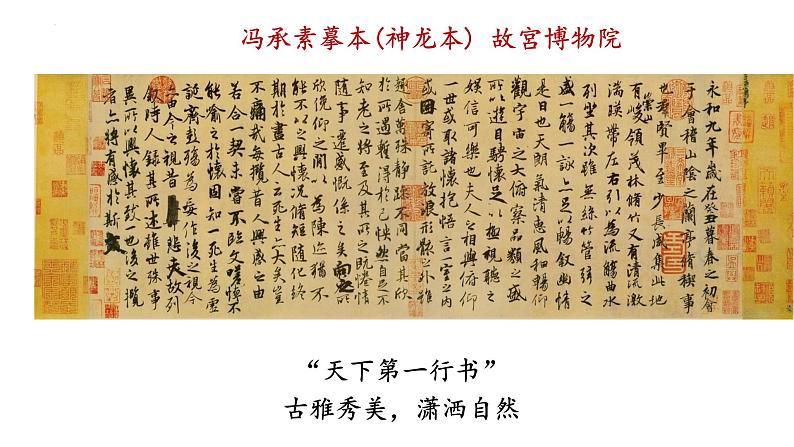 冯承素摹本(神龙本) 故宫博物院
永和九年歲在癸丑暮春之初會
于會稽山陰之蘭亭脩稧事
也羣賢畢至少長咸集此地
有崇山峻領茂林脩竹又有清流激
湍暎帶左右引以為流觴曲水
列坐其次雖無絲竹管弦之
盛一觴一詠亦足以暢敘幽情
是日也天朗氣清惠風和暢仰
觀宇宙之大俯察品類之盛
所以遊目騁懷足以極視聽之
娛信可樂也夫人之相與俯仰
一世或取諸懷抱悟言一室之內
或因寄所託放浪形骸之外雖
趣舍萬殊靜躁不同當其欣
於所遇暫得於己快然自足不
知老之將至及其所之既惓情
隨事遷感慨係之矣向之所
欣俛仰之閒以為陳迹猶不
能不以之興懷況脩短隨化終
期於盡古人云死生亦大矣豈
不痛哉每攬昔人興感之由
若合一契未嘗不臨文嗟悼不
能喻之於懷固知一死生為虛
誕齊彭殤為妄作後之視今
亦由今之視昔悲夫故列
敘時人錄其所述雖世殊事
異所以興懷其致一也後之攬
者亦將有感於斯文
“天下第一行书”
古雅秀美，潇洒自然